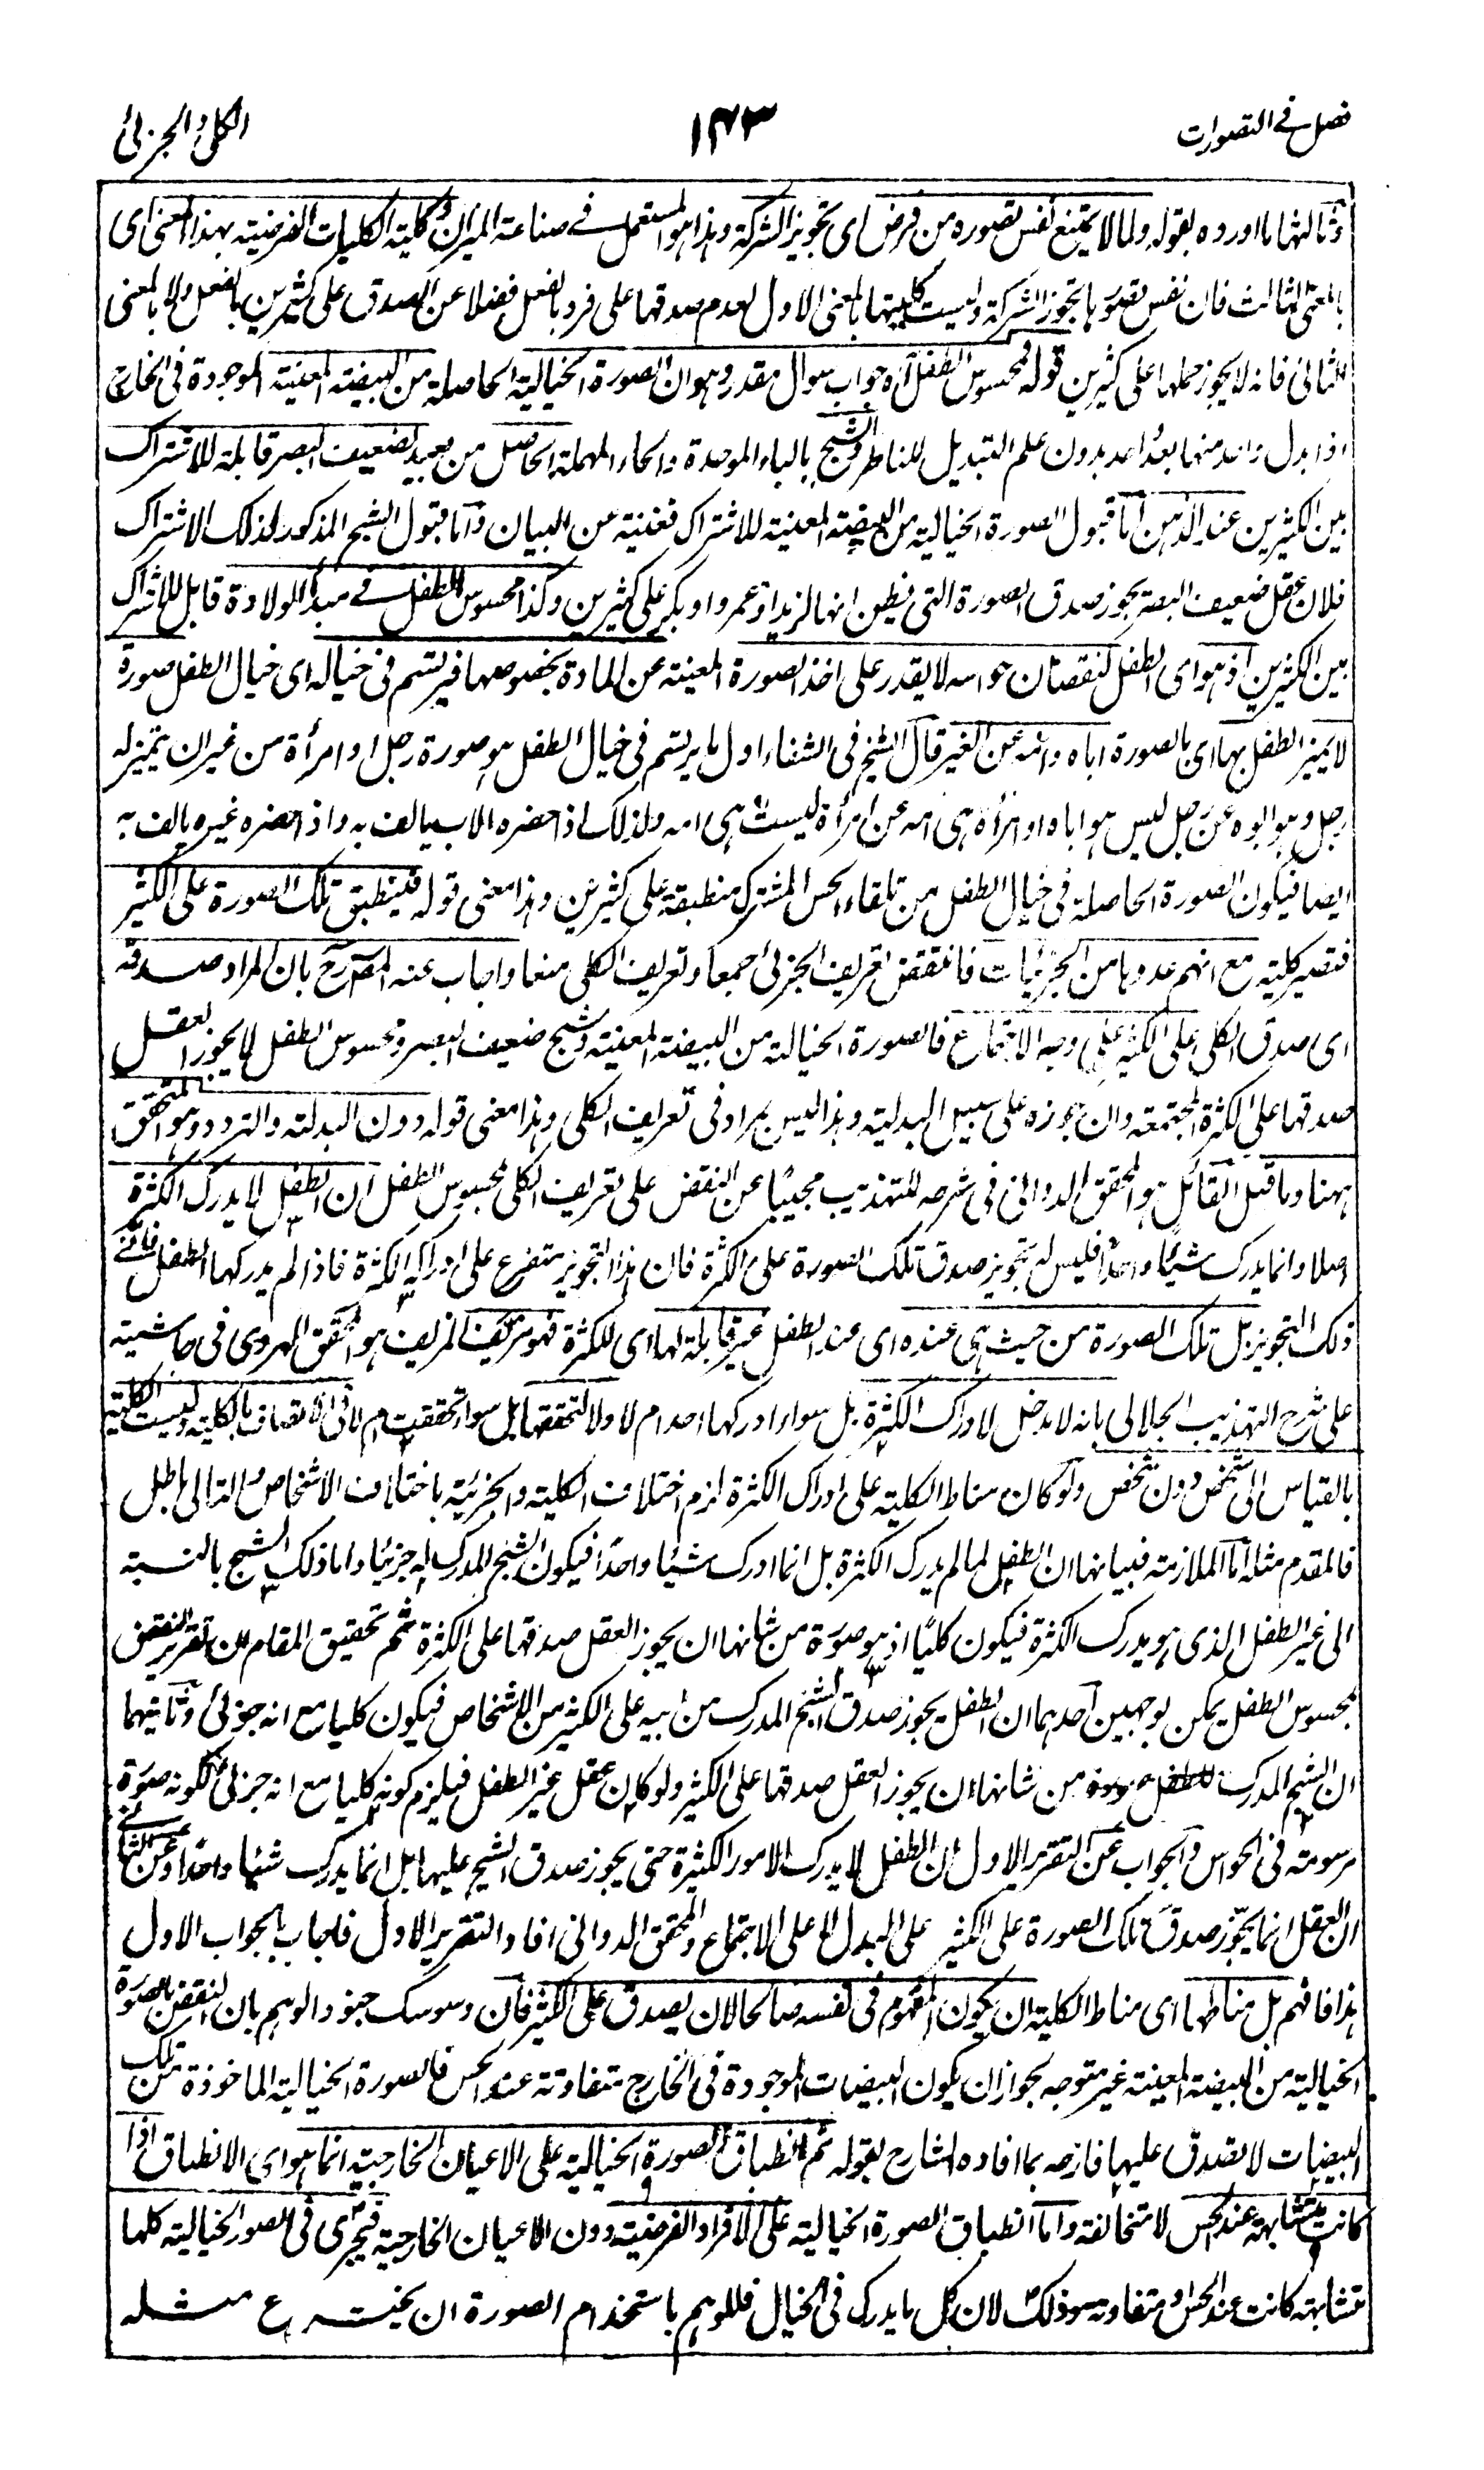 فصل في التصورات
١٤٣
الكلي والجزئي
وثالثها ما اورده بقوله ولما لا يمتنع نفس تصوره من فرض اى تجويز الشركة وهذا هو المستعمل في صناعة الميزان وكلية الكليات الفرضية بهذا المعنى اى
بالمعنى الثالث فان نفس تصورها تجوز الشركة وليست كليتها بالمعنى الاول لعدم صدقها على فرد بالفعل فضلا عن الصدق على كثيرين بالفعل ولا بالمعنى
الثانى فانه لا يجوز حملها على كثيرين قوله ومحسوس الطفل آه جواب سوال مقدر وهو ان الصورة الخيالية الحاصلة من البيضة المعينة الموجودة فى الخارج
اذا بدل واحد منها بعد واحد بدون علم التبديل للناظر والشبح بالباء الموحدة والحاء المهملة الحاصل من بعيد لضعيف البصر قابلة للاشتراك
بين الكثيرين عند الذهن اما قبول الصورة الخيالية من البيضة المعينة للاشتراك فغنية عن البيان واما قبول الشبح المذكور لذلك الاشتراك
فلان عقل ضعيف البصر يجوز صدق الصورة التى يظن انها لزيد او عمرو او بكر على كثيرين وكذا محسوس الطفل في مبدأ الولادة قابل للاشتراك
بين الكثيرين اذ هو اى الطفل لنقصان حواسه لا يقدر على اخذ الصورة المعينة عن المادة بخصوصها فيرتسم فى خياله اى خيال الطفل صورة
لا يميز الطفل بها اى بالصورة اباه وامه عن الغير قال الشيخ فى الشفاء اول ما يرتسم فى خيال الطفل هو صورة رجل او امرأة من غير ان يتميز له
رجل وهو ابوه عن رجل ليس هو اباه او امرأة هى امه عن امرأة ليست هى امه ولذلك اذ احضره الاب يالف به واذ احضره غيره يالف به
ايضا فيكون الصورة الحاصلة فى خيال الطفل من تلقاء الحس المشترك منطبقة على كثيرين وهذا معنى قوله فينطبق تلك الصورة على الكثير
فتصير كلية مع انهم عدوها من الجزئيات فانتقض تعريف الجزئى جمعا وتعريف الكلى منعا واجاب عنه المصرح بان المراد صدقه
اى صدق الكلى على الكثير على وجه الاجتماع فالصورة الخيالية من البيضة المعينة وشبح ضعيف البصر ومحسوس الطفل لا يجوز العقل
صدقها على الكثرة المجتمعة وان جوزه على سبيل البدلية وهذا ليس بمراد فى تعريف الكلى وهذا معنى قوله دون البدلية والتردد وهو المتحقق
ههنا وما قيل القائل هو المحقق الدوانى فى شرحه للتهذيب مجيبًا عن النقض على تعريف الكلى بمحسوس الطفل ان الطفل لا يدرك الكثرة
اصلا وانما يدرك شيئًا واحدًا فليس له تجويز صدق تلك الصورة على الكثرة فان هذا التجويز متفرع على ادراكه الكثرة فاذا لم يدركها الطفل فانى
ذلك التجويز بل تلك الصورة من حيث هى عنده اى عند الطفل غير قابلة لها اى للكثرة فهو مزيف المزيف هو المحقق الهروى فى حاشيته
على شرح التهذيب الجلالى بانه لا يدخل لادراك الكثرة بل سواء ادركها احد ام لا ولا لتحققها بل سواء تحققت ام لا فى الاتصاف بالكلية وليست الكلية
بالقياس الى شخص دون شخص ولو كان مناط الكلية على ادراك الكثرة لزم اختلاف الكلية والجزئية باختلاف الاشخاص والتالى باطل
فالمقدم مثله اما الملازمة فبيانها ان الطفل لما لم يدرك الكثرة بل انما ادرك شيئا واحدًا فيكون الشبح المدرك له جزئيا واما ذلك الشبح بالنسبة
الى غير الطفل الذى هو يدرك الكثرة فيكون كليًا اذ هو صورة من شانها ان يجوز العقل صدقها على الكثرة ثم تحقيق المقام ان تقرير النقض
بمحسوس الطفل يمكن بوجهين احدهما ان الطفل يجوز صدق الشبح المدرك من ابيه على الكثير من الاشخاص فيكون كليا مع انه جزئى وثانيهما
ان الشبح المدرك للطفل صورة من شانها ان يجوز العقل صدقها على الكثير ولو كان عقل غير الطفل فيلزم كونه كليا مع انه جزئى لكونه صورة
مرسومة فى الحواس والجواب عن التقرير الاول ان الطفل لا يدرك الامور الكثيرة حتى يجوز صدق الشبح عليها بل انما يدرك شيئا واحدًا وعن الثانى
ان العقل انما يجوّز صدق تلك الصورة على الكثير على البدل لا على الاجتماع والمحقق الدوانى افاد التقرير الاول فاجاب بالجواب الاول
هذا فافهم بل مناطها اى مناط الكلية ان يكون المفهوم فى نفسه صالحا لان يصدق على الكثير فان وسوسك جنود الوهم بان النقض بالصورة
الخيالية من البيضة المعينة غير متوجه لجواز ان يكون البيضات الموجودة فى الخارج متفاوتة عند الحس فالصورة الخيالية الماخوذة من تلك
البيضات لا تصدق عليها فازحه بما افاده الشارح بقوله ثم انطباق الصورة الخيالية على الاعيان الخارجية انما هو اى الانطباق اذا
كانت متشابهة عند الحس لا متخالفة واما انطباق الصورة الخيالية على الافراد الفرضية دون الاعيان الخارجية فيجرى فى الصور الخيالية كلها
متشابهة كانت عند الحس او متفاوتة وذلك لان كل ما يدرك فى الخيال فللوهم باستخدام الصورة ان يخترع مثله